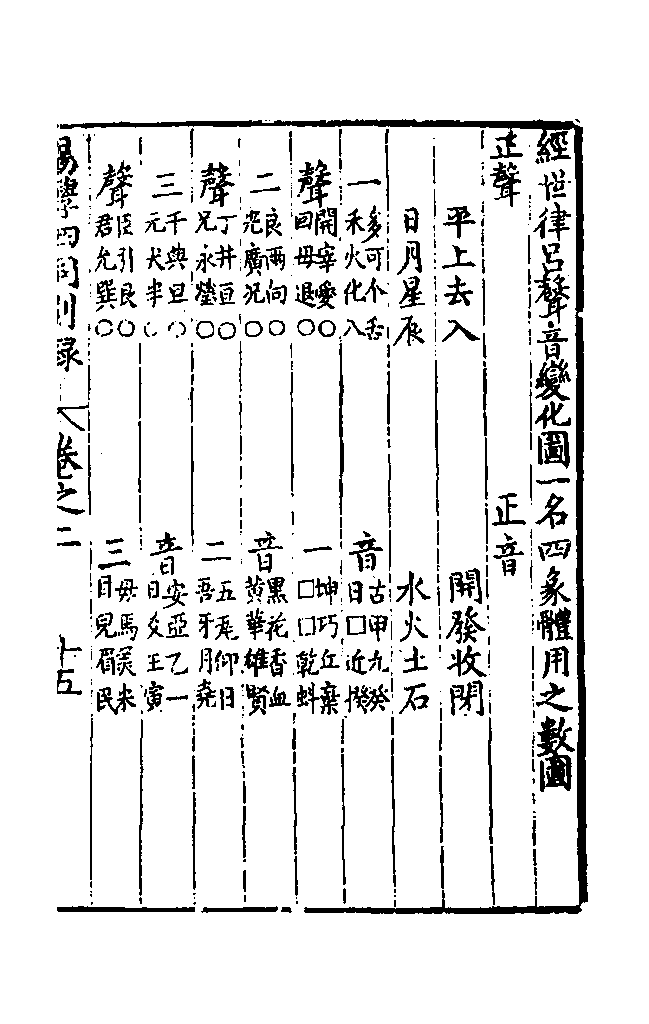 經世律呂聲音變化圖一名四象體用之數圖
正聲 正音
平上去入 開發收閉
日月星辰 水火土石
一 多可个舌 禾火化八 音 古甲九癸 日□近揆
聲 開宰愛○ 回毋退○ 一 坤巧丘棄 □□乾蚪
二 良兩向○ 光廣况○ 音 黑花香血 黄華雄賢
聲 丁井亘○ 兄永瑩○ 二 五瓦仰日 吾牙月堯
三 千典旦○ 元犬半○ 音 安亞乙一 日爻王寅
聲 臣引艮○ 君允巽○ 三 毋馬美米 目皃眉民
易學四同別録 卷之二 十五